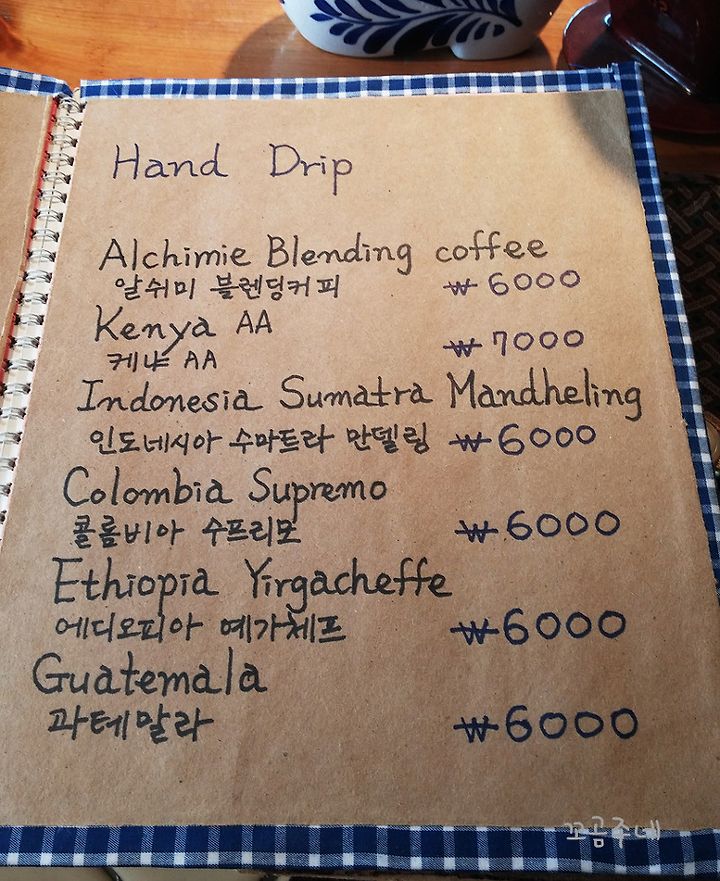 Hand Drip
Alchimie Blending coffee
알쉬미 블렌딩커피 ₩ 6000
Kenya AA
케냐 AA ₩ 7000
Indonesia Sumatra Mandheling
인도네시아 수마트라 만델링 ₩ 6000
Colombia Supremo
콜롬비아 수프리모 ₩ 6000
Ethiopia Yirgacheffe
에디오피아 예가체프 ₩ 6000
Guatemala
과테말라 ₩ 6000
꼬곰주네